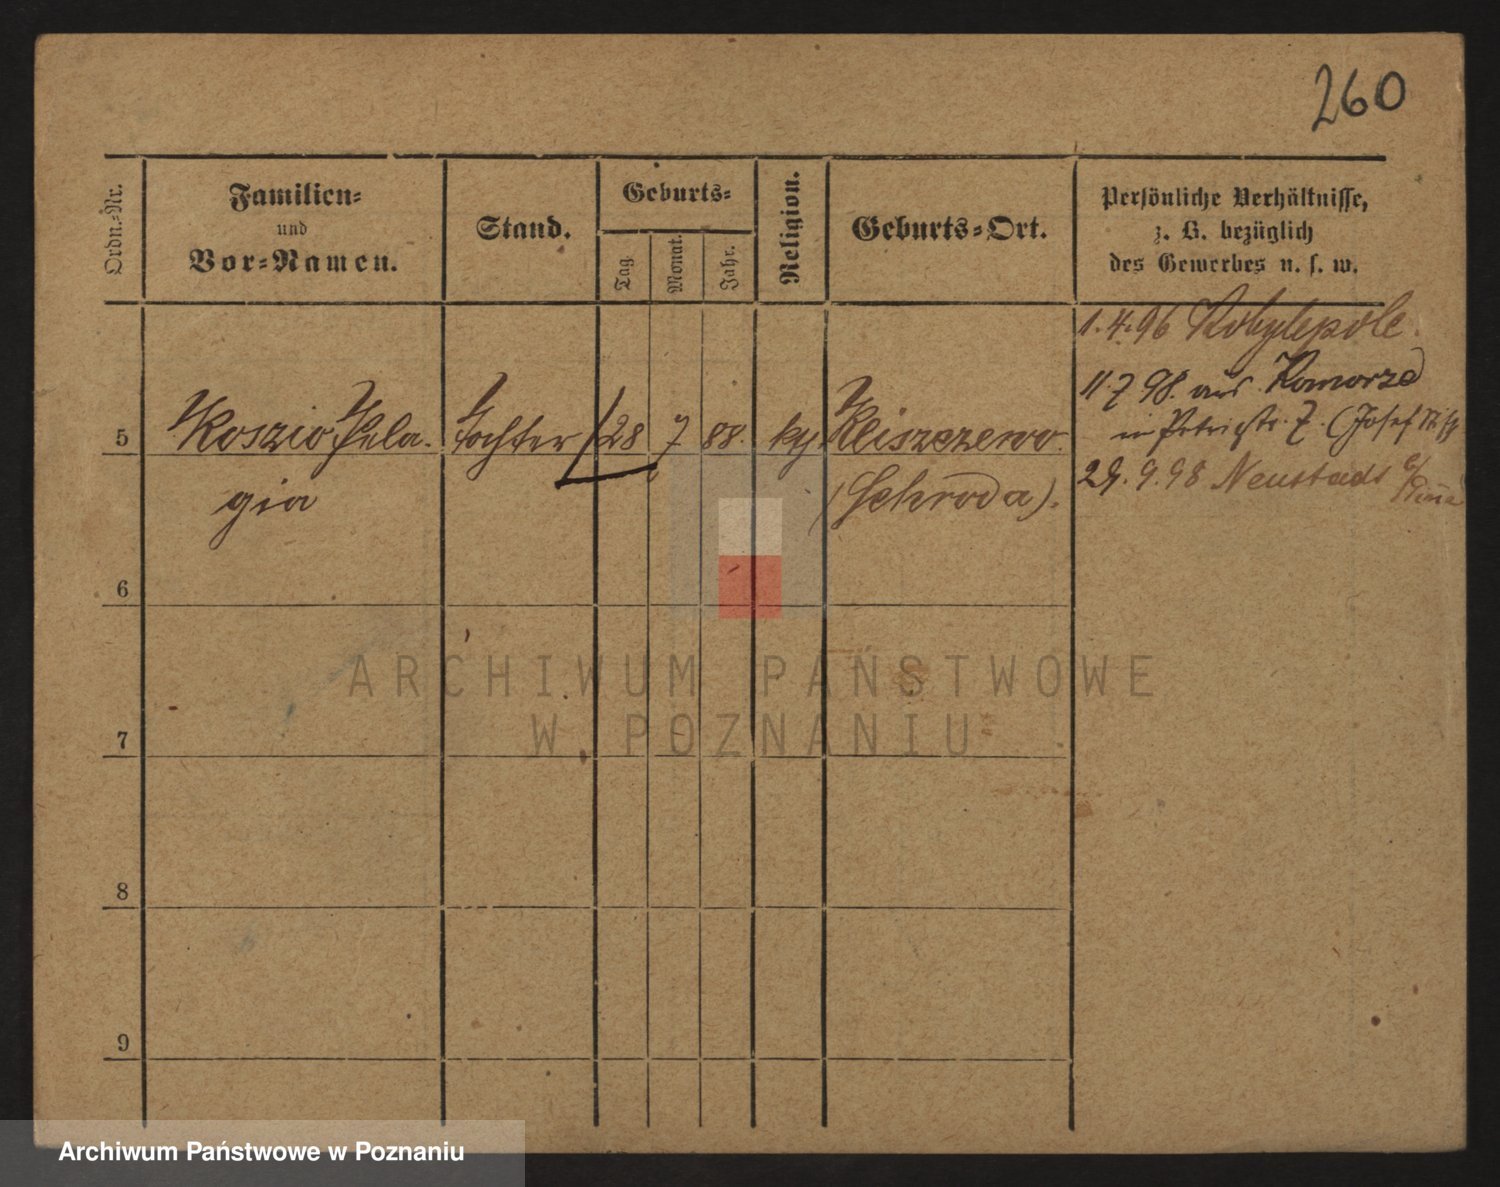 260
Ordn.-Nr.
Familien-
und
Vor-Namen.
Stand.
Geburts-
Tag.
Monat.
Jahr.
Religion.
Geburts-Ort.
Persönliche Verhältnisse,
z. B. bezüglich
des Gewerbes u. s. w.
1.4.96 Kobylepole.
11.7.98. aus Komorze
in Petristr. 7. (Josef
5 Koszio Pela- Tochter 28 7 88. Kleiszczewo.
gia (Schroda).
29.9.98 Neustadt
6
7
8
9
ARCHIWUM PAŃSTWOWE
W POZNANIU
Archiwum Państwowe w Poznaniu